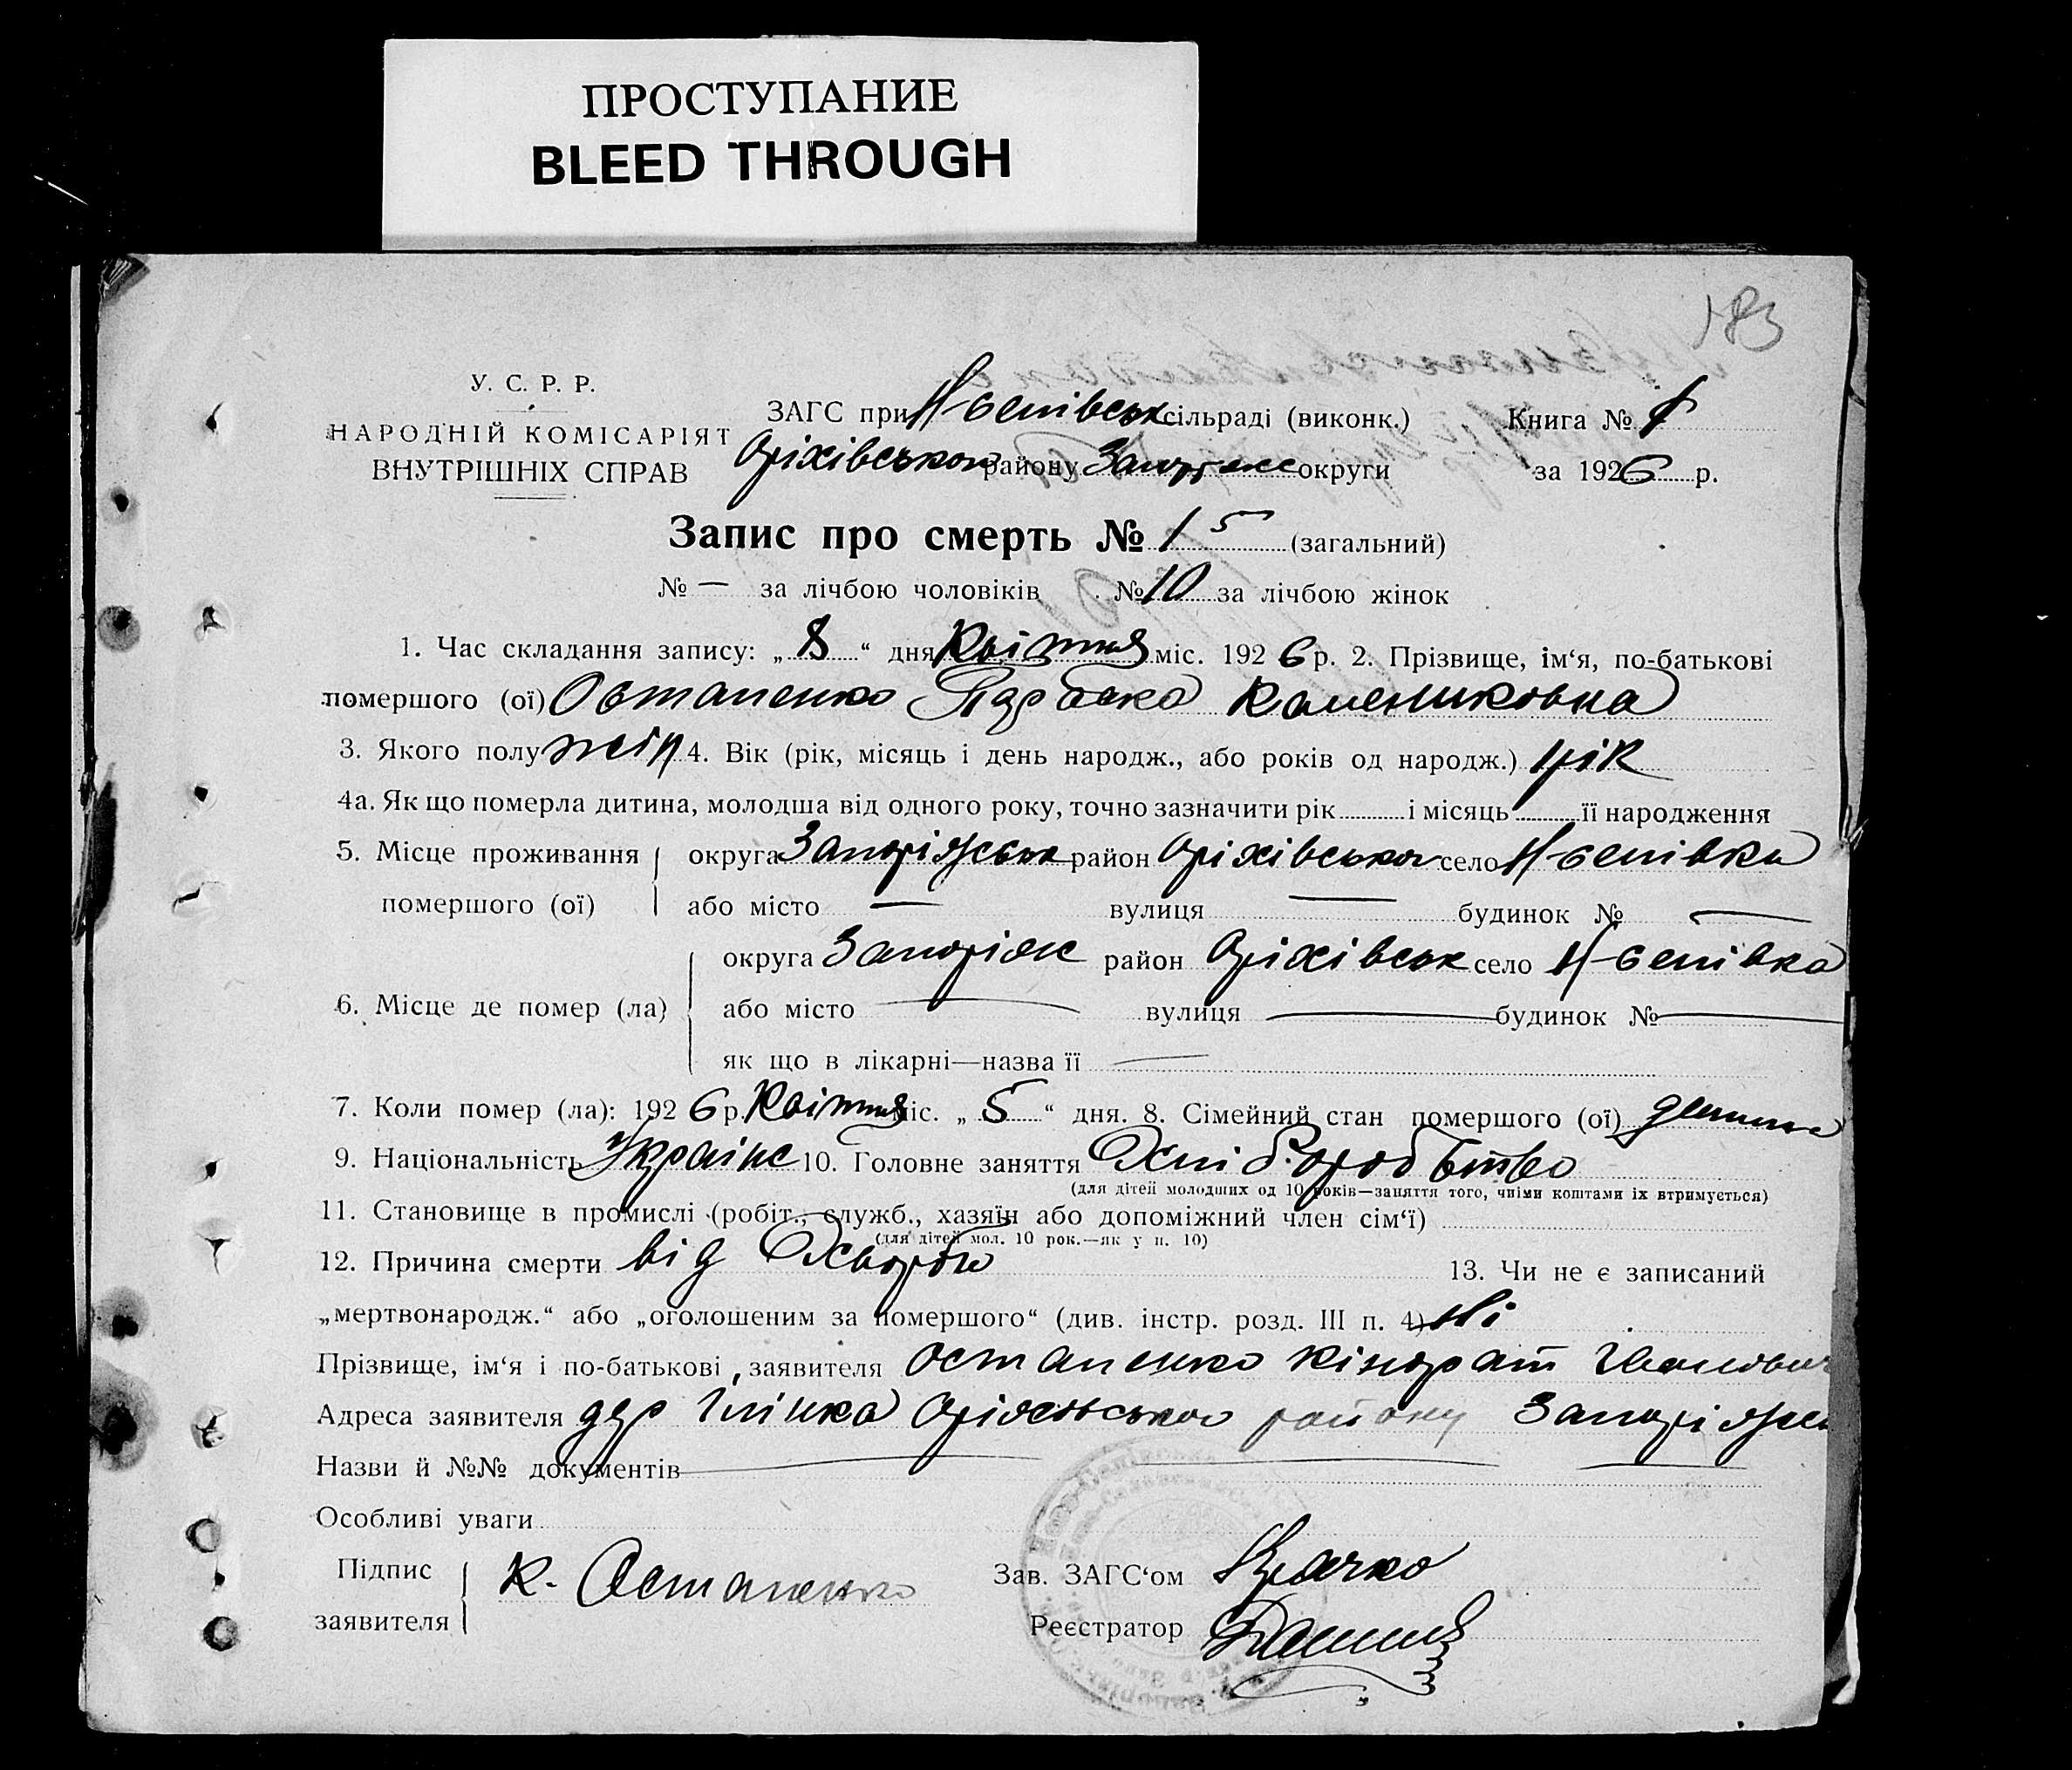 ПРОСТУПАНИЕ
BLEED THROUGH
183
У. С. Р. Р.
НАРОДНІЙ КОМІСАРІЯТ
ВНУТРІШНІХ СПРАВ
ЗАГС при сільраді (виконк.)
Оріхівського району Запоріж округи
Книга №
за 1926 р.
Запис про смерть № 15 (загальний)
№ — за лічбою чоловіків № 10 за лічбою жінок
1. Час складання запису: „ 8 “ дня Квітня міс. 1926 р. 2. Прізвище, ім‘я, по-батькові
помершого (ої) Остапенко
3. Якого полу жін 4. Вік (рік, місяць і день народж., або років од народж.) 1 рік
4а. Як що померла дитина, молодша від одного року, точно зазначити рік і місяць її народження
5. Місце проживання помершого (ої) округа Запоріжська район Оріхівський село
або місто — вулиця — будинок № —
6. Місце де помер (ла) округа Запоріж район Оріхівськ село
або місто — вулиця — будинок № —
як що в лікарні—назва її —
7. Коли помер (ла): 1926 р. Квітня міс. „ 5 “ дня. 8. Сімейний стан помершого (ої) дитина
9. Національність Українс 10. Головне заняття Хліборобство
(для дітей молодших од 10 років—заняття того, чиїми коштами їх втримується)
11. Становище в промислі (робіт., служб., хазяїн або допоміжний член сім‘ї)
(для дітей мол. 10 рок.—як у п. 10)
12. Причина смерти від Хвороби 13. Чи не є записаний
„мертвонародж.“ або „оголошеним за помершого“ (див. інстр. розд. III п. 4) ні
Прізвище, ім‘я і по-батькові заявителя Остапенко Кіндрат Іванович
Адреса заявителя Оріхівського району Запоріжськ
Назви й №№ документів —
Особливі уваги
Підпис заявителя К. Остапенко
Зав. ЗАГС‘ом
Реєстратор